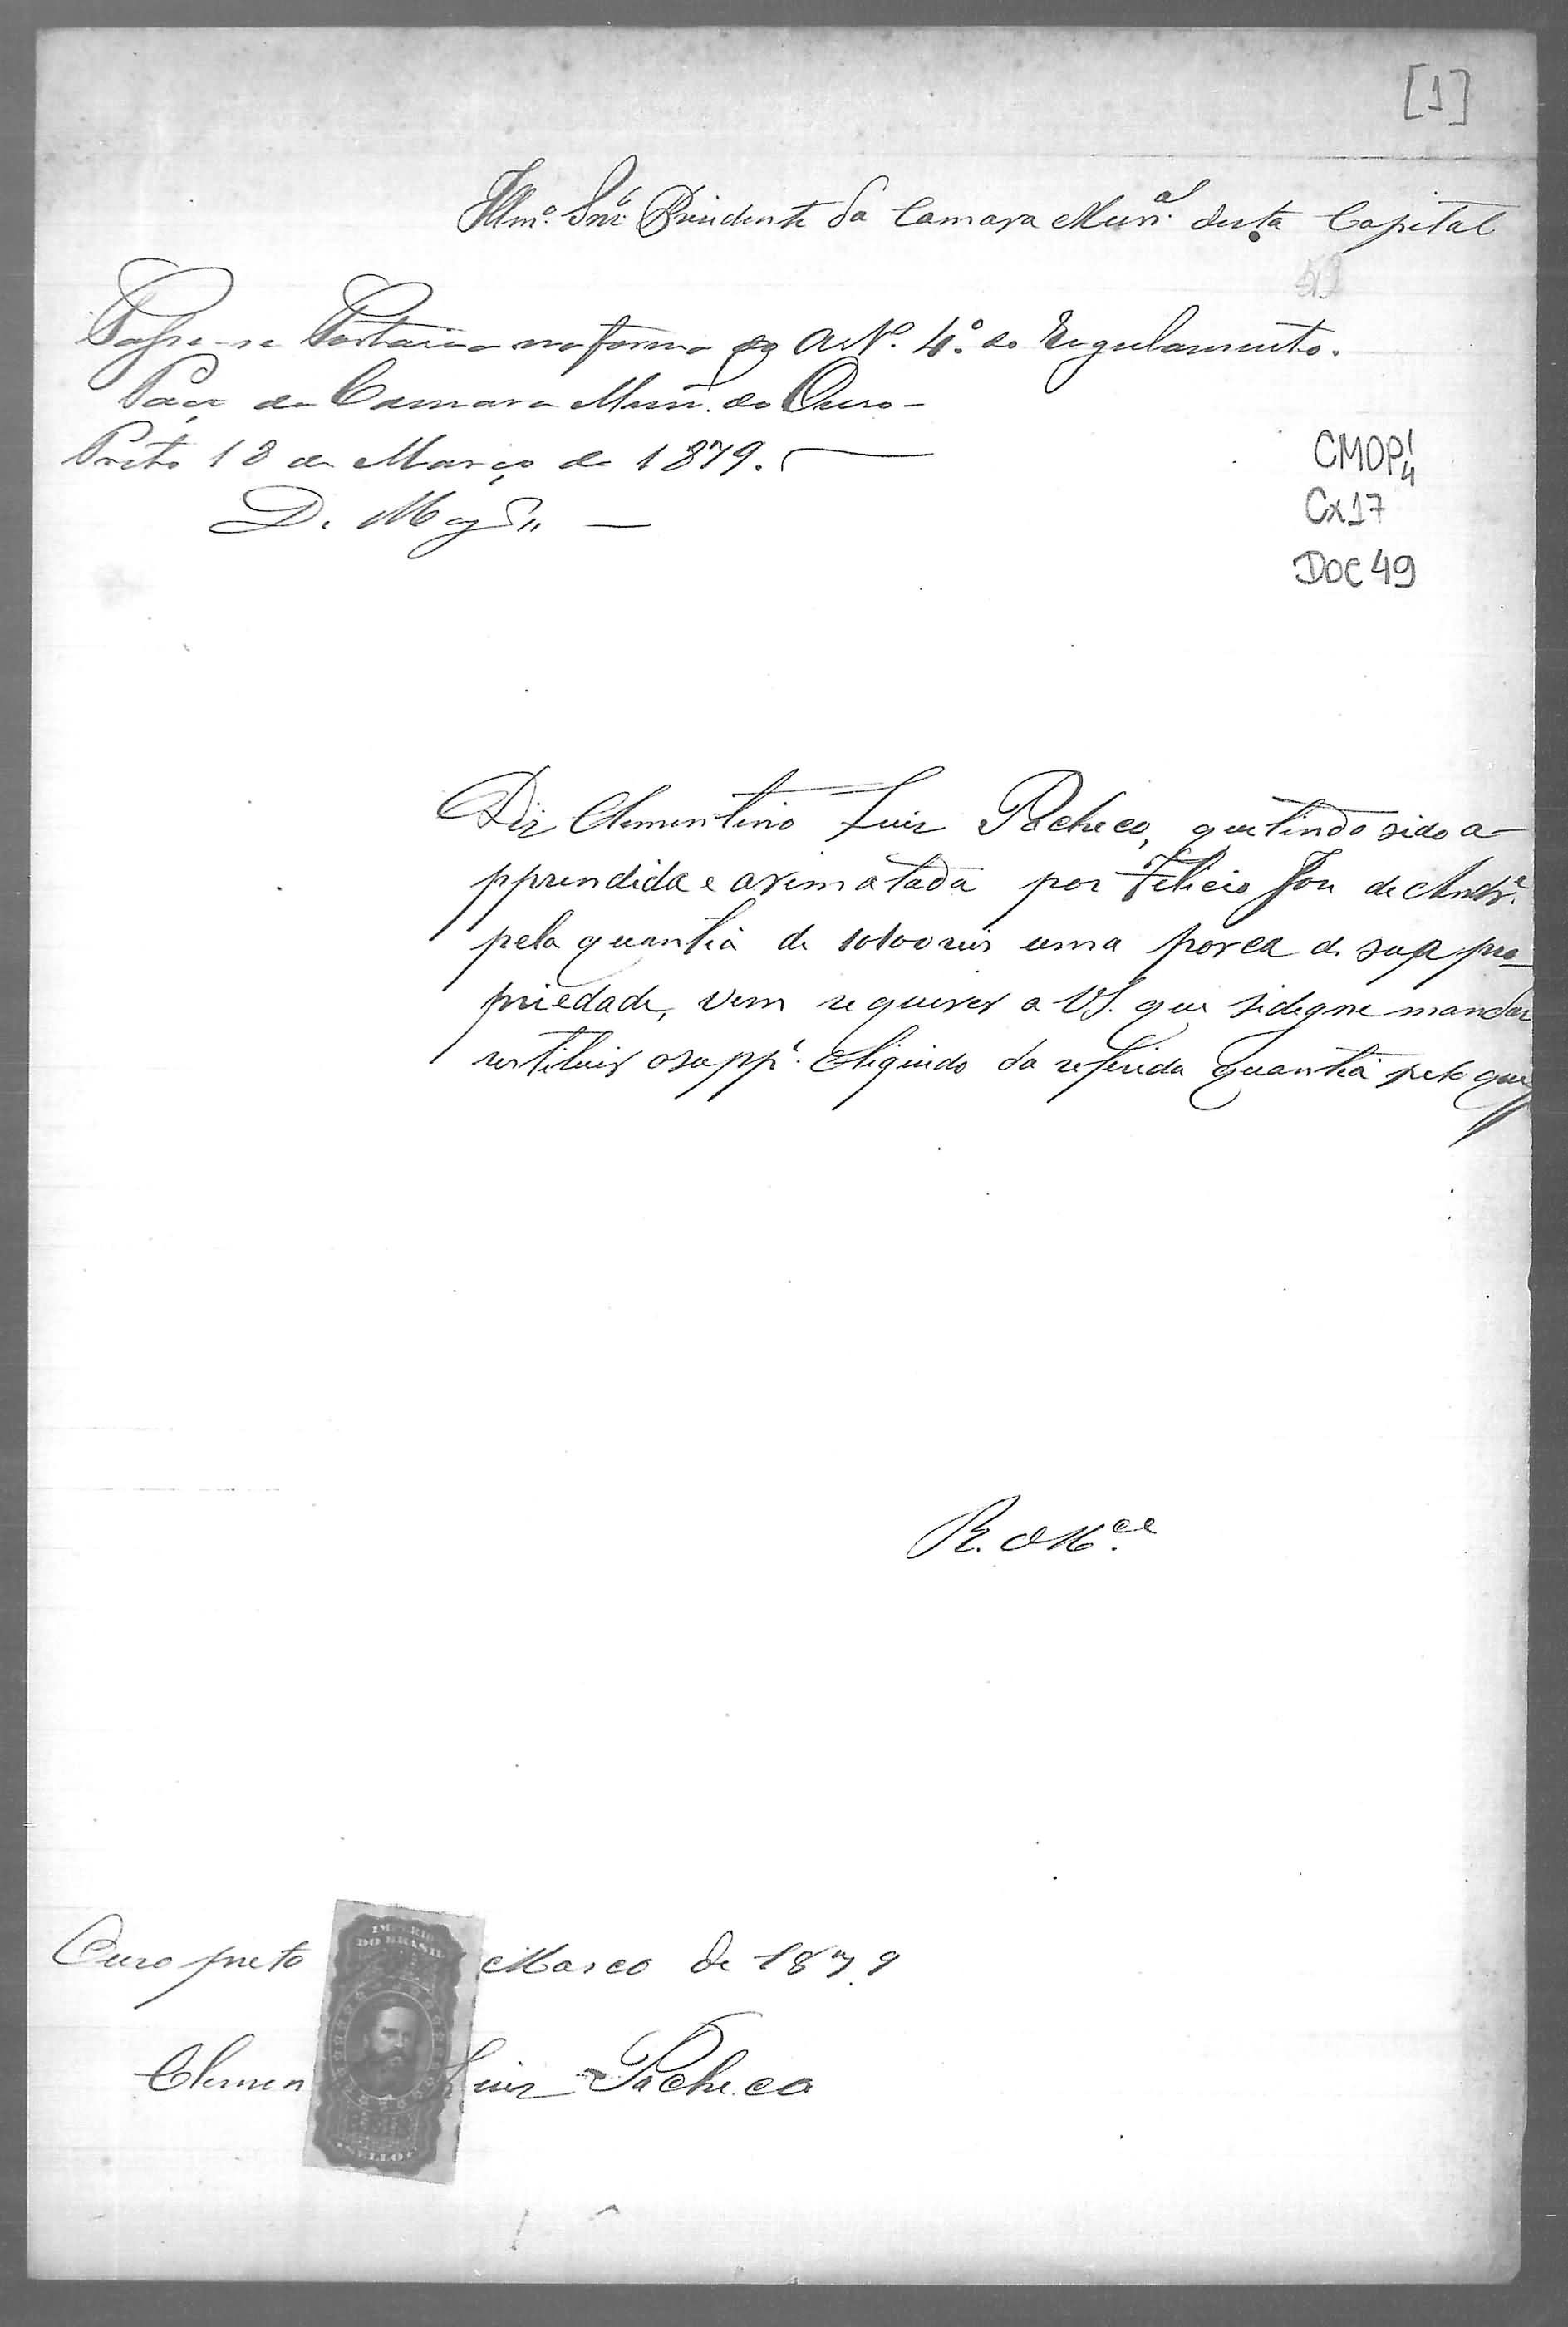 [1]
Illmo. Snr. Presidente da Camara Munal. desta Capital
Passe-se Portaria na forma do Art. 4º. do Regulamento.
Paço da Camara Mun. do Ouro-
Preto 18 de Março de 1879.
CMOP
Cx17
DOC 49
Diz Clementino Luiz Pacheco, que tendo sido a-
pprendida e arematada por Felicio José de Andre.
pela quantia de reis uma porca de sua pro-
priedade, vem requerer a VS. que sedigne mandar
restituir o suppe. oliquido da referida quantia pelo que
R. Mce.
Ouro preto Marco de 1879
Clemen Luiz Pacheco
IMPERIO
DO BRASIL
SELLO